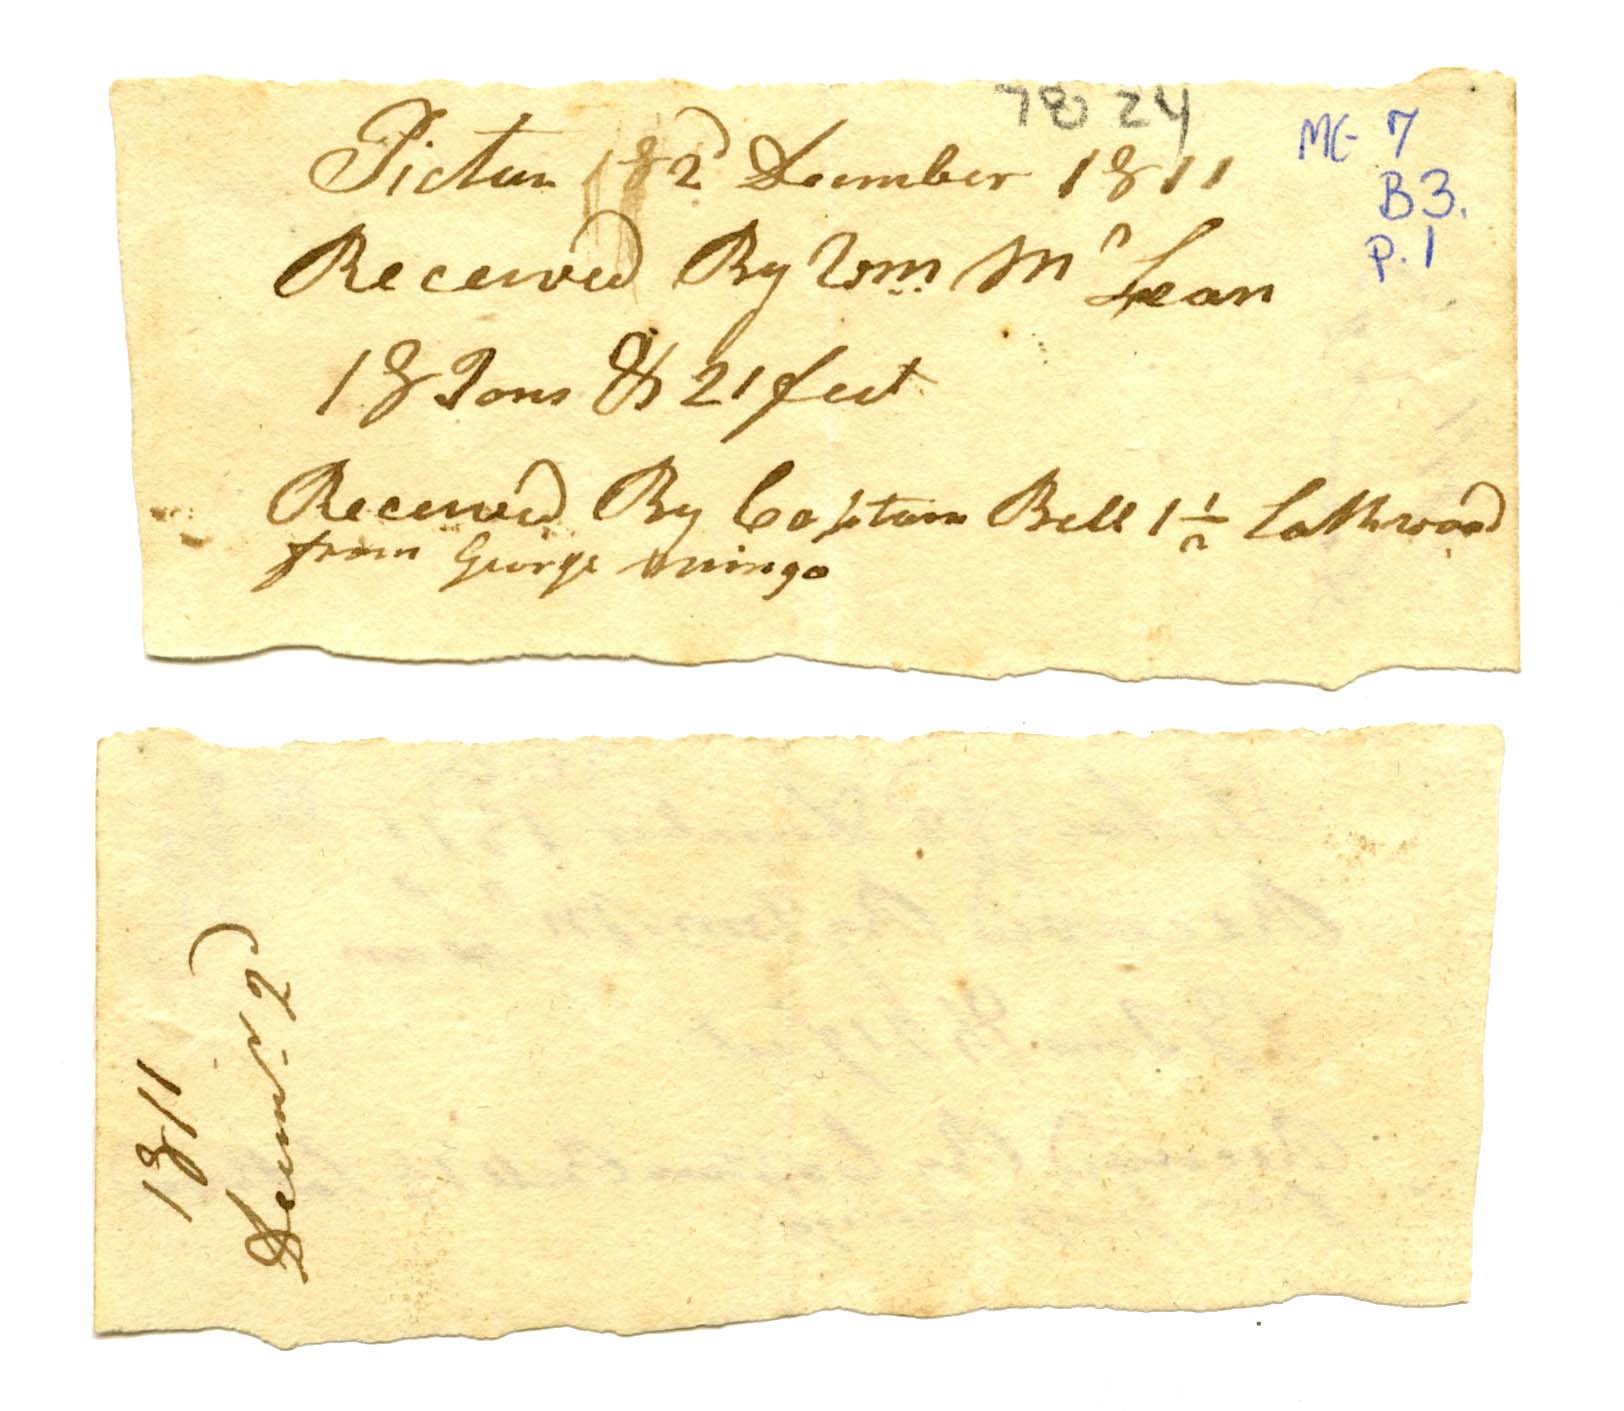 78 24
MG 7
B3.
P.1
Pictou 2d December 1811
Received By Wm Mc Lean
18 Tons & 21 feet
Received By Captain Bell 1 1/2 Lathwood
from George mingo
1811
Decemr 2d